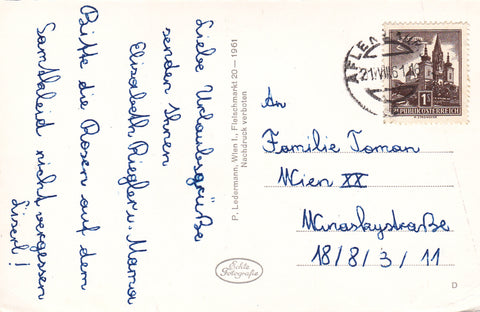 Liebe Urlaubsgrüße
senden Ihnen
Elisabeth Riegler u. Mama
Bitte die Rosen auf dem
Samtkleid nicht vergessen
Liserl!
P. Ledermann, Wien I., Fleischmarkt 20 — 1961
Nachdruck verboten
Echte
Fotografie
AFLENZ
21.VIII.61
1S
REPUBLIK ÖSTERREICH
An
Familie Toman
Wien XX
Winarskystraße
18/8/3/11
D